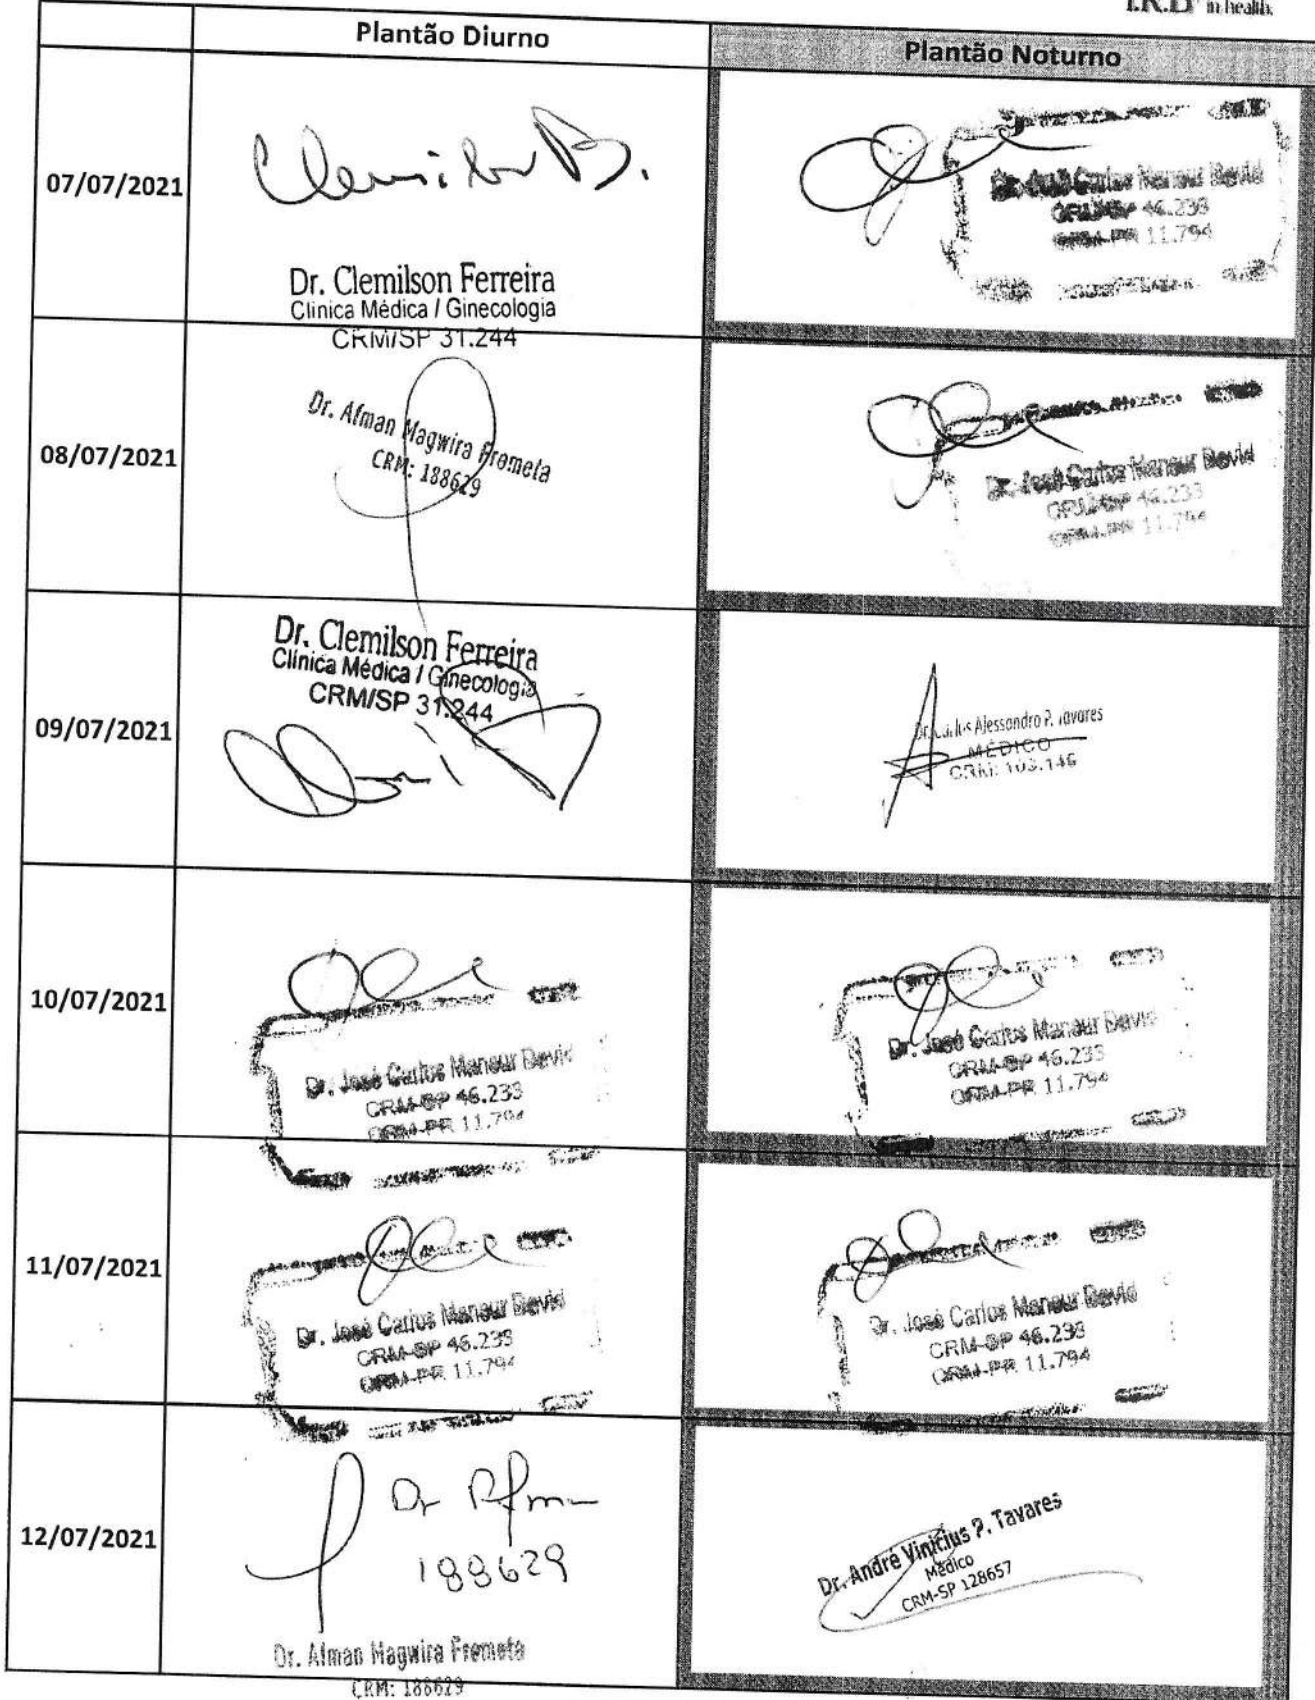 I.R.D in health.
Plantão Diurno
Plantão Noturno
07/07/2021
Clemilson
Dr. Clemilson Ferreira
Clínica Médica / Ginecologia
CRM/SP 31.244
Dr. José Carlos Mansur David
CRM-SP 46.233
CRM-PR 11.794
08/07/2021
Dr. Afman Magwira Fremeta
CRM: 188629
Dr. José Carlos Mansur David
CRM-SP 46.233
CRM-PR 11.794
09/07/2021
Dr. Clemilson Ferreira
Clínica Médica / Ginecologia
CRM/SP 31.244
Dr. Carlos Alessandro P. Tavares
MÉDICO
CRM: 103.146
10/07/2021
Dr. José Carlos Mansur David
CRM-SP 46.233
CRM-PR 11.794
Dr. José Carlos Mansur David
CRM-SP 46.233
CRM-PR 11.794
11/07/2021
Dr. José Carlos Mansur David
CRM-SP 46.233
CRM-PR 11.794
Dr. José Carlos Mansur David
CRM-SP 46.233
CRM-PR 11.794
12/07/2021
Dr Afman
188629
Dr. Afman Magwira Fremeta
CRM: 188629
Dr. André Vinicius P. Tavares
Médico
CRM-SP 128657